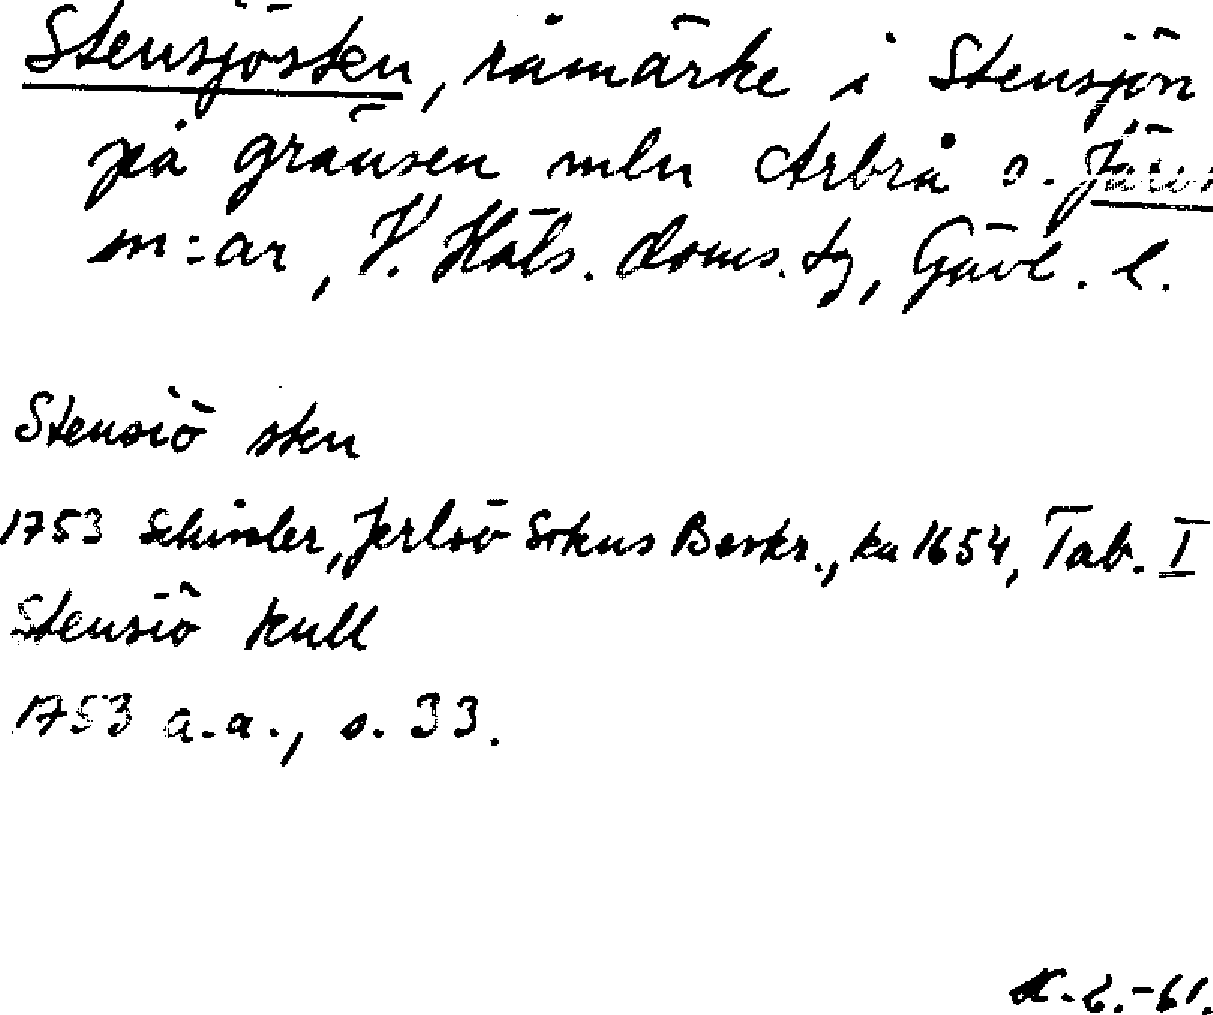 Stensjösken, råmärke i Stensjön
på gränsen mln Arbrå o. Järvs
m:ar, V. Häls. doms. tg, Gävl. l.
Stensiö sken
1753 Schissler, Jerlsö Sokns Beskr., ka 1654, Tab. I
Stensiö kull
1753 a.a., s. 33.